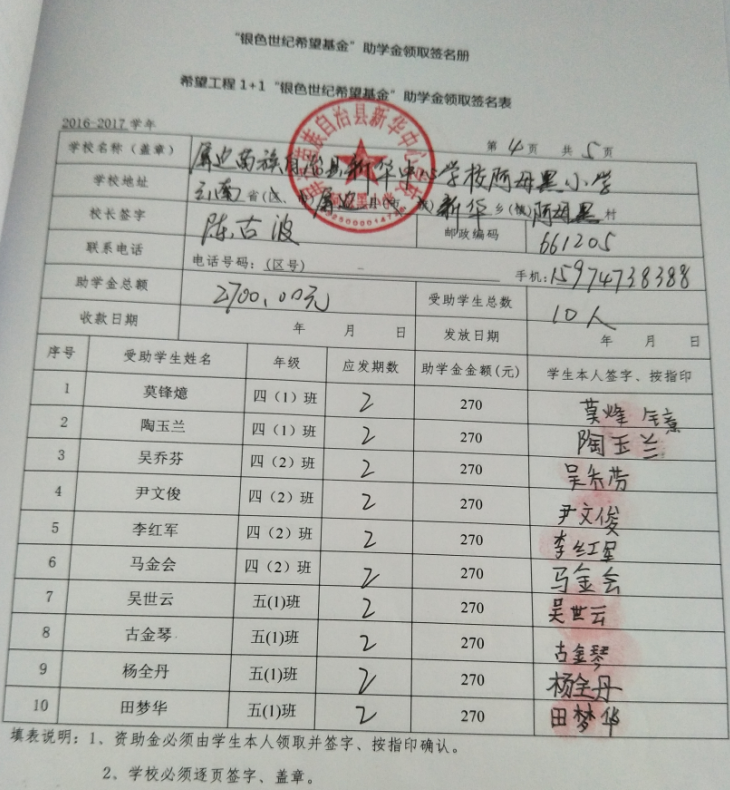 “银色世纪希望基金”助学金领取签名册
希望工程1+1“银色世纪希望基金”助学金领取签名表
2016-2017学年 第4页 共5页
学校名称（盖章） 屏边苗族自治县新华中心学校阿母黑小学
学校地址 云南省(区、市)屏边 新华乡(镇)阿母黑村
校长签字 陈古波 邮政编码 661205
联系电话 电话号码：(区号) 手机：15974738388
助学金总额 2700.00元 受助学生总数 10人
收款日期 年 月 日 发放日期 年 月 日
序号 受助学生姓名 年级 应发期数 助学金金额(元) 学生本人签字、按指印
1 莫锋熜 四（1）班 2 270 莫烽
2 陶玉兰 四（1）班 2 270 陶玉兰
3 吴乔芬 四（2）班 2 270 吴乔芬
4 尹文俊 四（2）班 2 270 尹文俊
5 李红军 四（2）班 2 270 李红军
6 马金会 四（2）班 2 270 马金会
7 吴世云 五(1)班 2 270 吴世云
8 古金琴 五(1)班 2 270 古金琴
9 杨全丹 五(1)班 2 270 杨全丹
10 田梦华 五(1)班 2 270 田梦华
填表说明：1、资助金必须由学生本人领取并签字、按指印确认。
2、学校必须逐页签字、盖章。